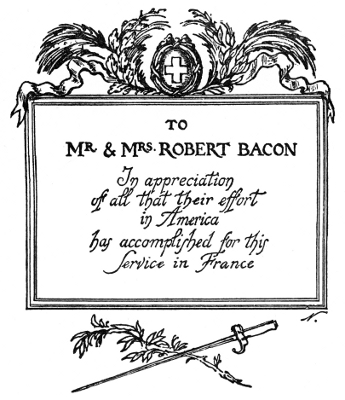 TO
MR & MRS. ROBERT BACON
In appreciation
of all that their effort
in America
has accomplished for this
Service in France
N.